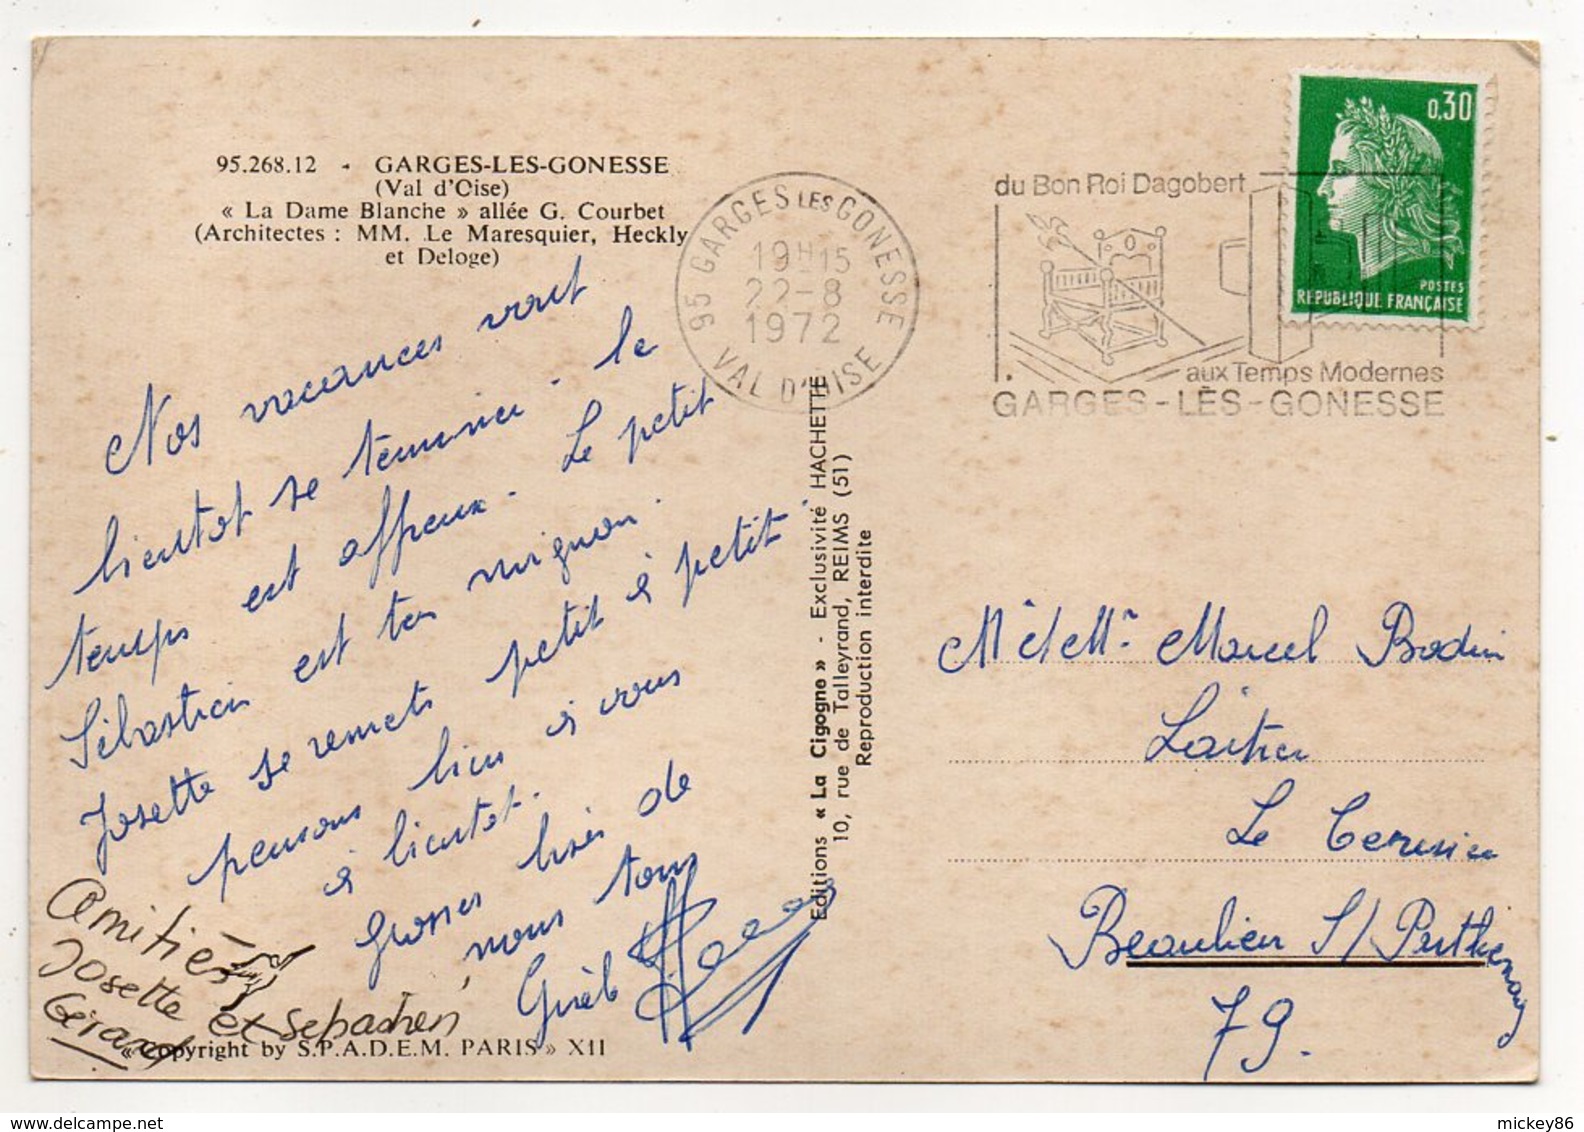 95.268.12 - GARGES-LES-GONESSE
(Val d'Oise)
« La Dame Blanche » allée G. Courbet
(Architectes : MM. Le Maresquier, Heckly
et Deloge)
Nos vacances vont
bientot se terminer. le
temps est affreux. Le petit
Sébastien est tes mignon.
Josette se remets petit à petit.
pensons bien à vous
à bientot.
Grosses bises de
nous tous
Amitiés
Josette et Sebastien,
Gérard
« Copyright by S.P.A.D.E.M. PARIS » XII
Editions « La Cigogne » - Exclusivité HACHETTE
10, rue de Talleyrand, REIMS (51)
Reproduction interdite
95 GARGES LES GONESSE
19H15
22-8
1972
VAL D'OISE
du Bon Roi Dagobert
aux Temps Modernes
GARGES-LÈS-GONESSE
0,30
POSTES
REPUBLIQUE FRANÇAISE
Mr et Mme Marcel Bodin
Laitier
Le
Beaulieu S/ Parthenay
79.
mickey86